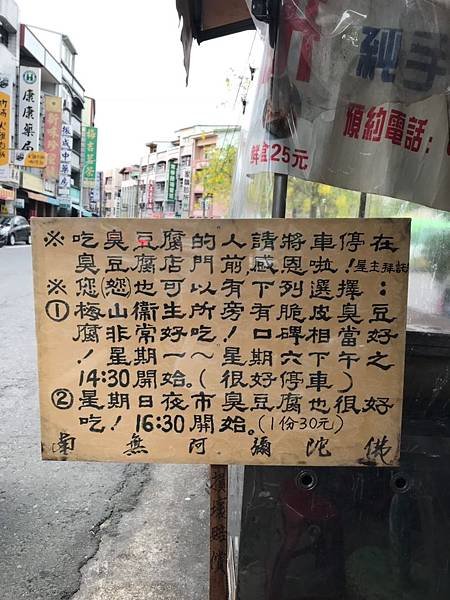 純手
預約電話：
鮮盒25元
康康藥局
梅吉茗茶
※吃臭豆腐的人請將車停在
臭豆腐店門前感恩啦！屋主拜託
※您(您)也可以有下列選擇：
①梅山衛生所旁！有脆皮臭豆
腐非常好吃！口碑相當好之
！星期一～星期六下午
14:30開始。(很好停車)
②星期日夜市臭豆腐也很好
吃！16:30開始。(1份30元)
南無阿彌陀佛
損壞賠償